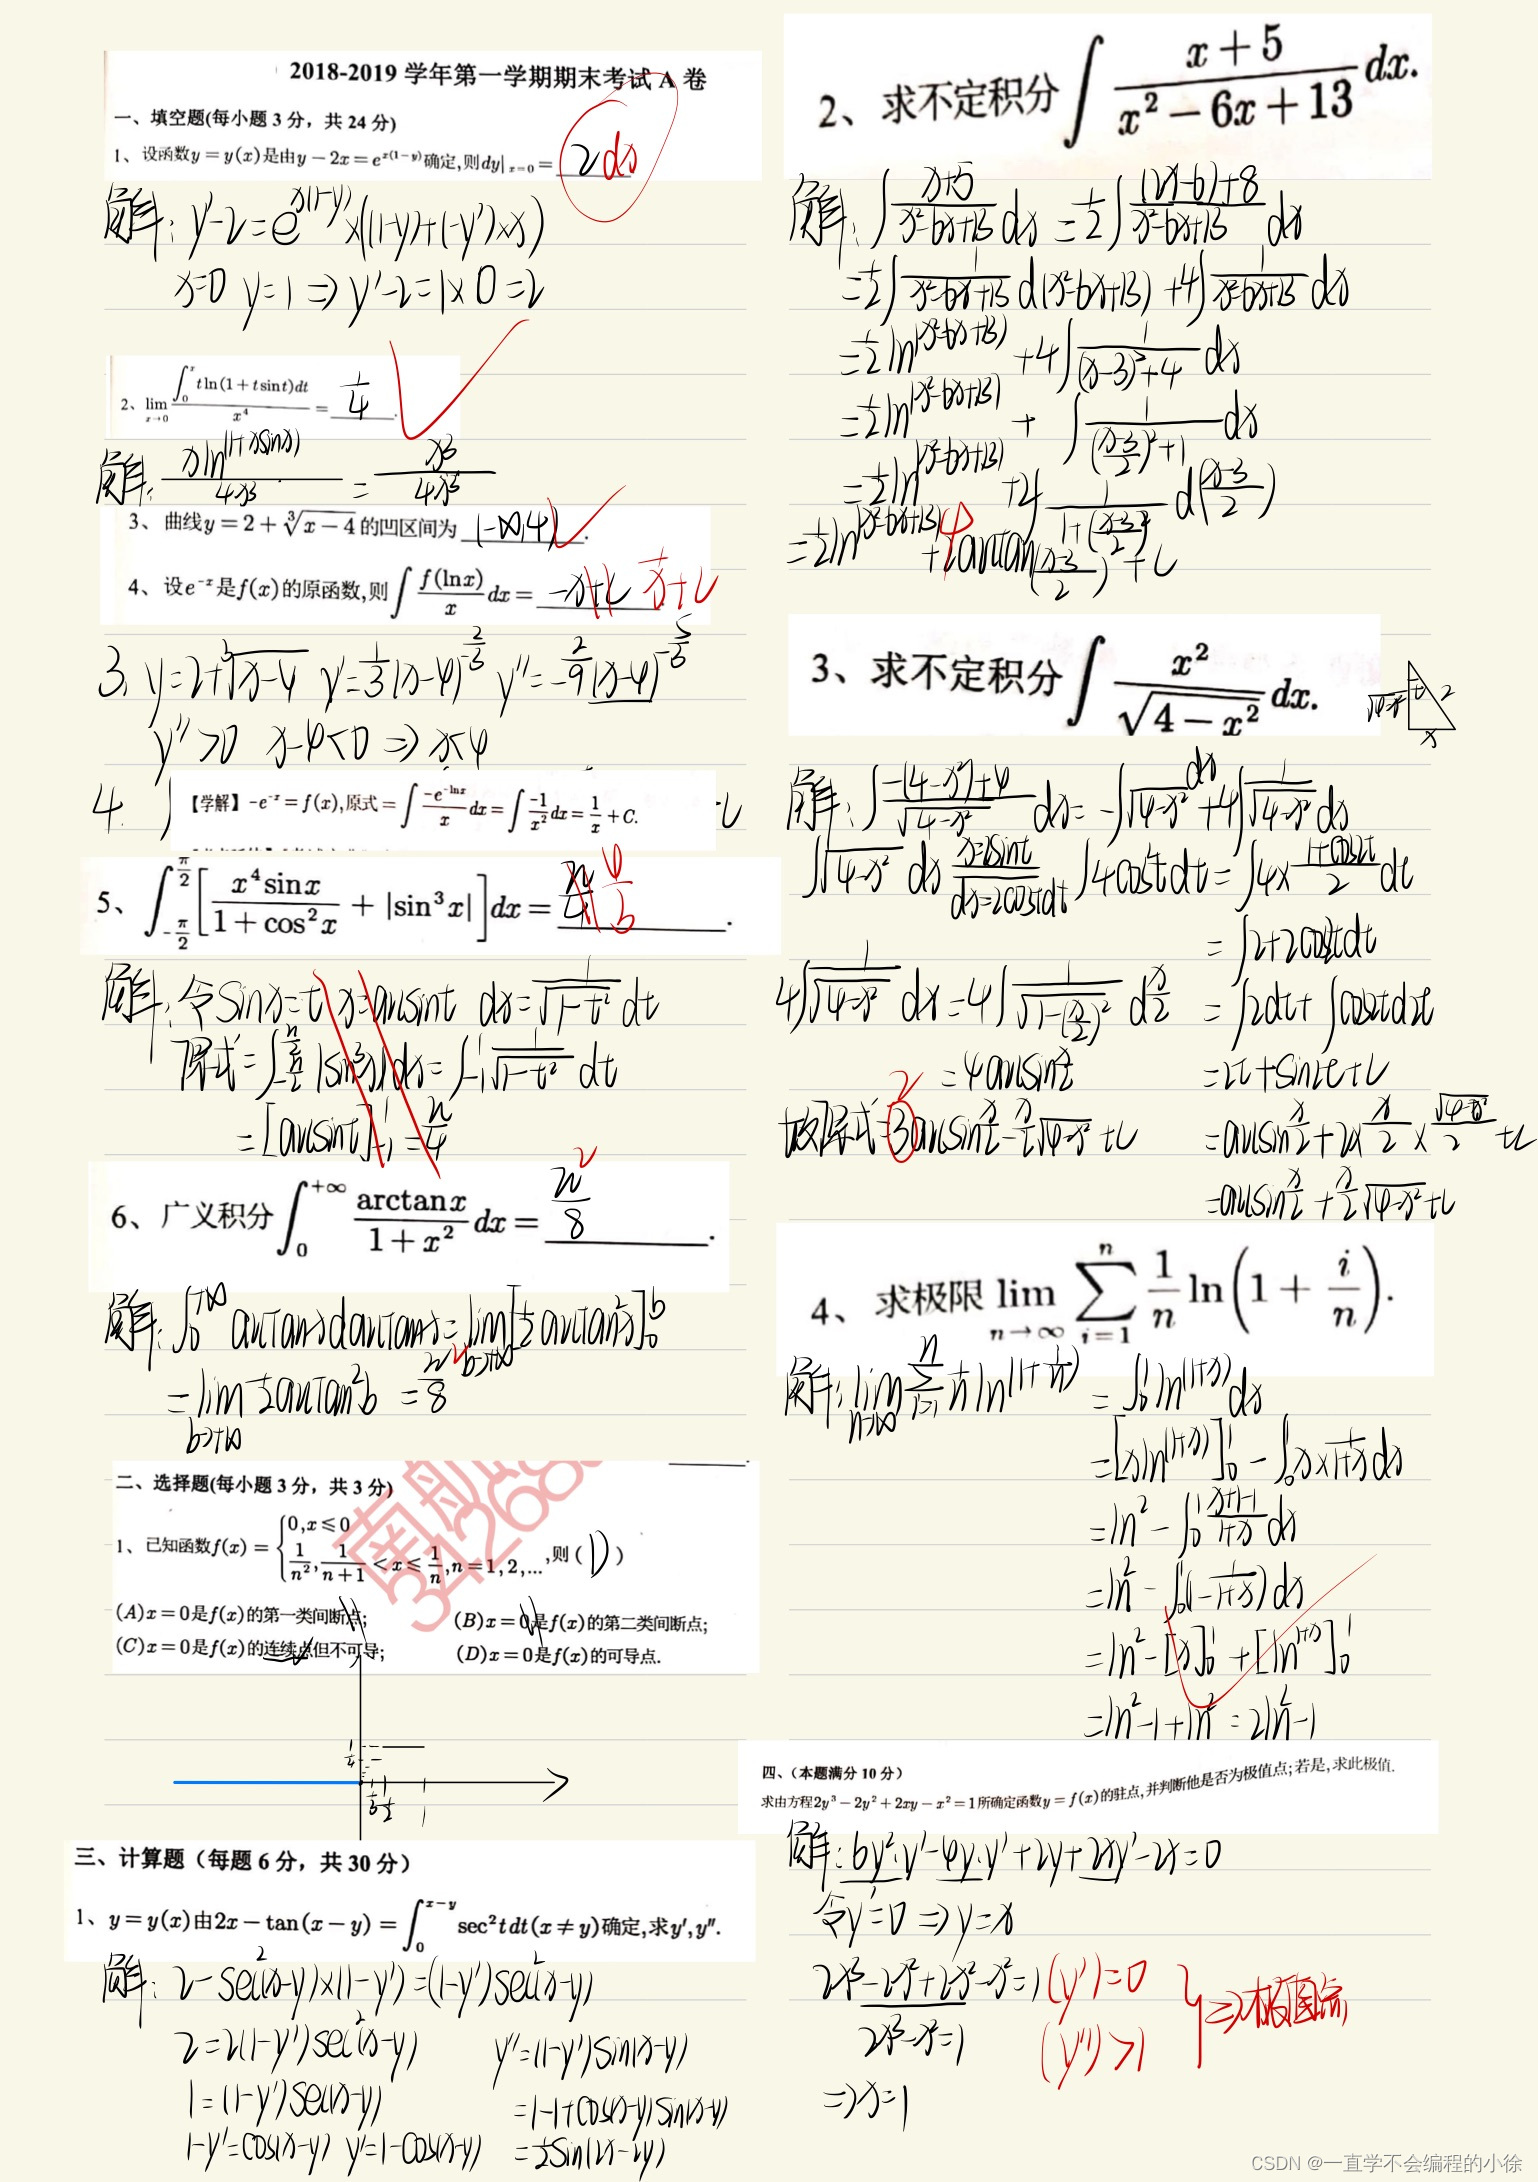 2018-2019 学年第一学期期末考试 A 卷
一、填空题(每小题 3 分，共 24 分)
1、设函数y=y(x)是由y-2x=e^{x(1-y)}确定,则dy|_{x=0}= 2dx
解: y'-2=e^{x(1-y)}×((1-y)+(-y')×x)
x=0 y=1 ⇒ y'-2=1×0=2
2、lim_{x→0} ∫_0^x tln(1+tsint)dt / x^4 = 1/4 .
解: xln^{(1+xsinx)} / 4x^3 = x^3 / 4x^3
3、曲线y=2+∛(x-4)的凹区间为 (-∞,4) .
4、设e^{-x}是f(x)的原函数,则∫ f(lnx)/x dx= -x+C 1/x+C
3、y=2+∛(x-4) y'=1/3(x-4)^{-2/3} y''=-2/9(x-4)^{-5/3}
y''>0 x-4<0 ⇒ x<4
4. ∫
【学解】-e^{-x}=f(x),原式=∫ -e^{-lnx}/x dx=∫ -1/x^2 dx=1/x+C.
5、∫_{-π/2}^{π/2} [x^4 sinx/(1+cos^2 x) + |sin^3 x|]dx= π/4 4/3 .
解: 令sinx=t x=arcsint dx=1/√(1-t^2) dt
原式=∫_{-π/2}^{π/2} |sin^3 x|dx=∫_{-1}^{1} 1/√(1-t^2) dt
=[arcsint]_{-1}^{1}=π/4
6、广义积分∫_0^{+∞} arctanx/(1+x^2) dx= π^2/8 .
解: ∫_0^{+∞} arctanx darctanx=lim_{b→+∞}[1/2 arctan^2 x]_0^b
=lim_{b→+∞} 1/2 arctan^2 b =π^2/8
二、选择题(每小题 3 分，共 3 分)
1、已知函数f(x)={0,x≤0
1/n^2, 1/(n+1)<x≤1/n, n=1,2,…,则( D )
(A)x=0是f(x)的第一类间断点; (B)x=0是f(x)的第二类间断点;
(C)x=0是f(x)的连续点但不可导; (D)x=0是f(x)的可导点.
1/4
1/3 1/2 1
三、计算题（每题 6 分，共 30 分）
1、y=y(x)由2x-tan(x-y)=∫_0^{x-y} sec^2 tdt(x≠y)确定,求y',y''.
解: 2-sec^2(x-y)×(1-y')=(1-y')sec^2(x-y)
2=2(1-y')sec^2(x-y) y''=(1-y')sin(x-y)
1=(1-y')sec(x-y) =1-1+cos(x-y)sin(x-y)
1-y'=cos(x-y) y'=1-cos(x-y) =1/2 sin(2x-2y)
2、求不定积分∫ (x+5)/(x^2-6x+13) dx.
解: ∫ (x+5)/(x^2-6x+13) dx =1/2∫ ((2x-6)+8... /(x^2-6x+13) dx
=1/2∫ 1/(x^2-6x+13) d(x^2-6x+13) +4∫ 1/(x^2-6x+13) dx
=1/2 ln^{(x^2-6x+13)} +4∫ 1/((x-3)^2+4) dx
=1/2 ln^{(x^2-6x+13)} + ∫ 1/(((x-3)/2)^2+1) dx
=1/2 ln^{(x^2-6x+13)} +4∫ 1/(1+((x-3)/2)^2) d((x-3)/2)
=1/2 ln^{(x^2-6x+13)} + 4 arctan((x-3)/2)+C
3、求不定积分∫ x^2/√(4-x^2) dx.
√(4-x^2) t 2 x
解: ∫ (-(4-x^2)+4)/√(4-x^2) dx=-∫√(4-x^2) dx+4∫ 1/√(4-x^2) dx
∫√(4-x^2) dx x=2sint dx=2costdt ∫4cos^2 tdt=∫4×(1+cos2t)/2 dt
=∫2+2cos2tdt
4∫ 1/√(4-x^2) dx=4∫ 1/√(1-(x/2)^2) d x/2 =∫2dt+∫cos2td2t
=4arcsin x/2 =2t+sin2t+C
故原式=3 2 arcsin x/2 - x/2 √(4-x^2)+C =arcsin x/2+2× x/2 × √(4-x^2)/2 +C
=arcsin x/2 + x/2 √(4-x^2)+C
4、求极限 lim_{n→∞} ∑_{i=1}^{n} 1/n ln(1+ i/n).
解: lim_{n→∞} ∑_{i=1}^{n} 1/n ln^{(1+1/n)} =∫_0^1 ln^{(1+x)} dx
=[xln^{(1+x)}]_0^1 -∫_0^1 x× 1/(1+x) dx
=ln^2 -∫_0^1 (x+1-1)/(1+x) dx
=ln^2 -∫_0^1 (1- 1/(1+x)) dx
=ln^2 -[x]_0^1 +[ln^{(1+x)}]_0^1
=ln^2-1+ln^2 =2ln^2-1
四、（本题满分 10 分）
求由方程2y^3-2y^2+2xy-x^2=1所确定函数y=f(x)的驻点,并判断他是否为极值点;若是,求此极值.
解: 6y^2·y'-4y·y'+2y+2xy'-2x=0
令y'=0 ⇒ y=x
2x^3-2x^2+2x^2-x^2=1 (y')=0
2x^3-x^2=1 (y'')>1 } ⇒极值点
⇒x=1
CSDN @一直学不会编程的小徐